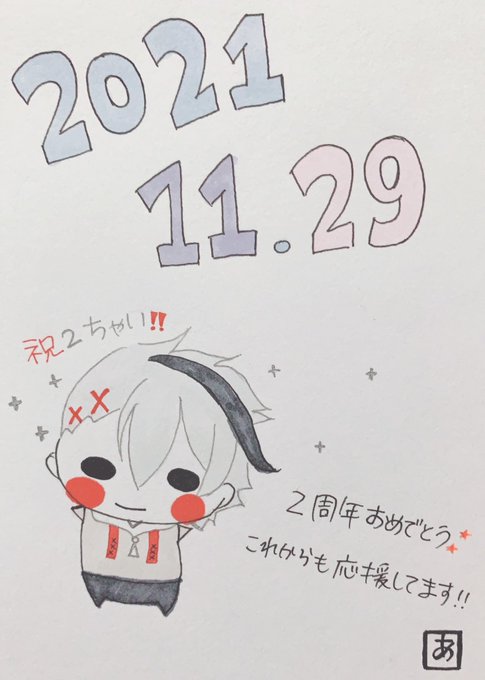 2021
11.29
祝2ちゃい!!
2周年おめでとう
これからも応援してます!!
あ